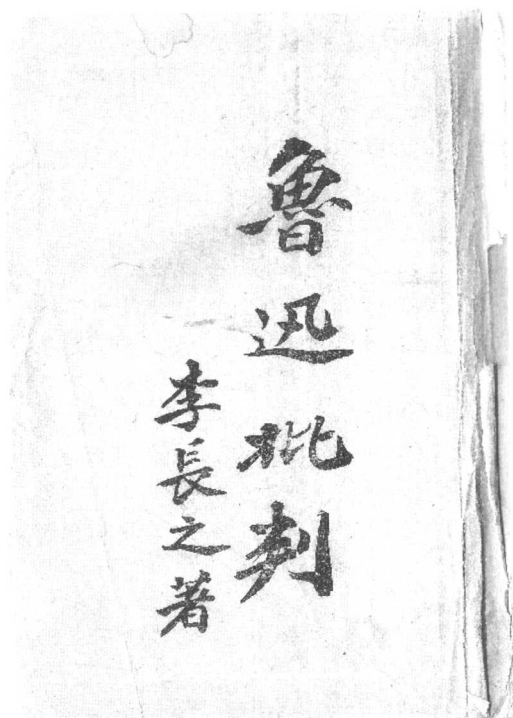 魯迅批判
李長之著